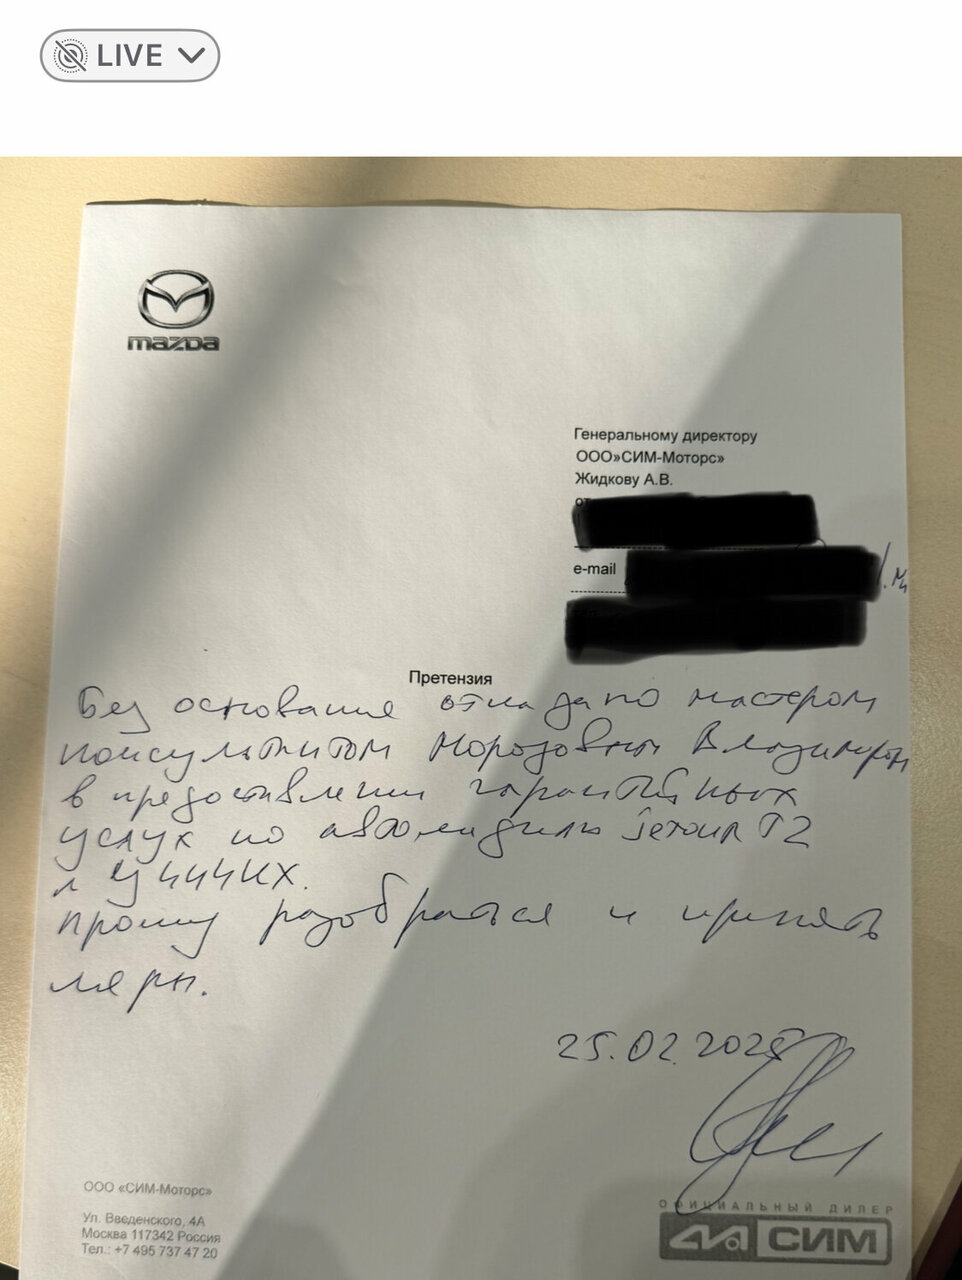 LIVE
mazda
Генеральному директору
ООО»СИМ-Моторс»
Жидкову А.В.
от
e-mail
Претензия
Без основания отказано мастером
консультантом Морозовым Владимиром
в предоставлении гарантийных
услуг по автомобилю Jetour T2
Прошу разобраться и принять
меры.
25.02.2025
ООО «СИМ-Моторс»
Ул. Введенского, 4А
Москва 117342 Россия
Тел.: +7 495 737 47 20
ОФИЦИАЛЬНЫЙ ДИЛЕР
СИМ